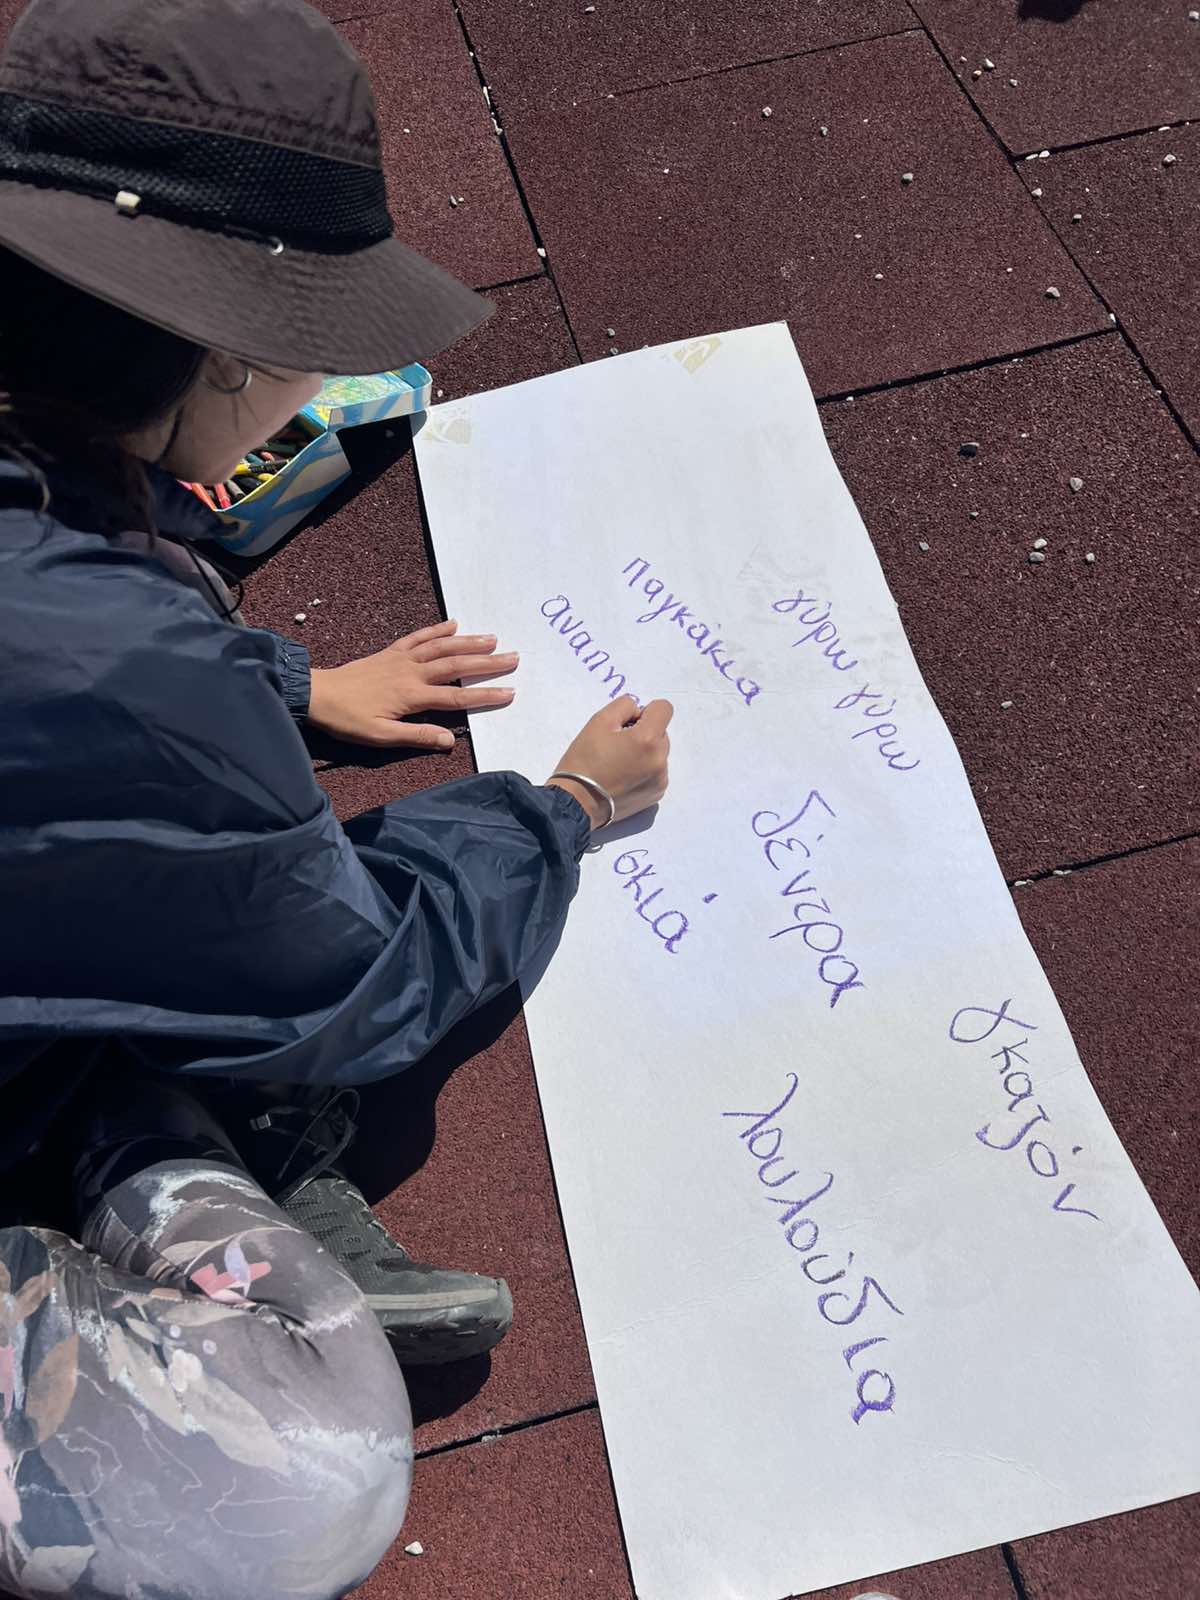 γύρω γύρω
παγκάκια
αναπη
δέντρα
σκιά
γκαζόν
λουλούδια